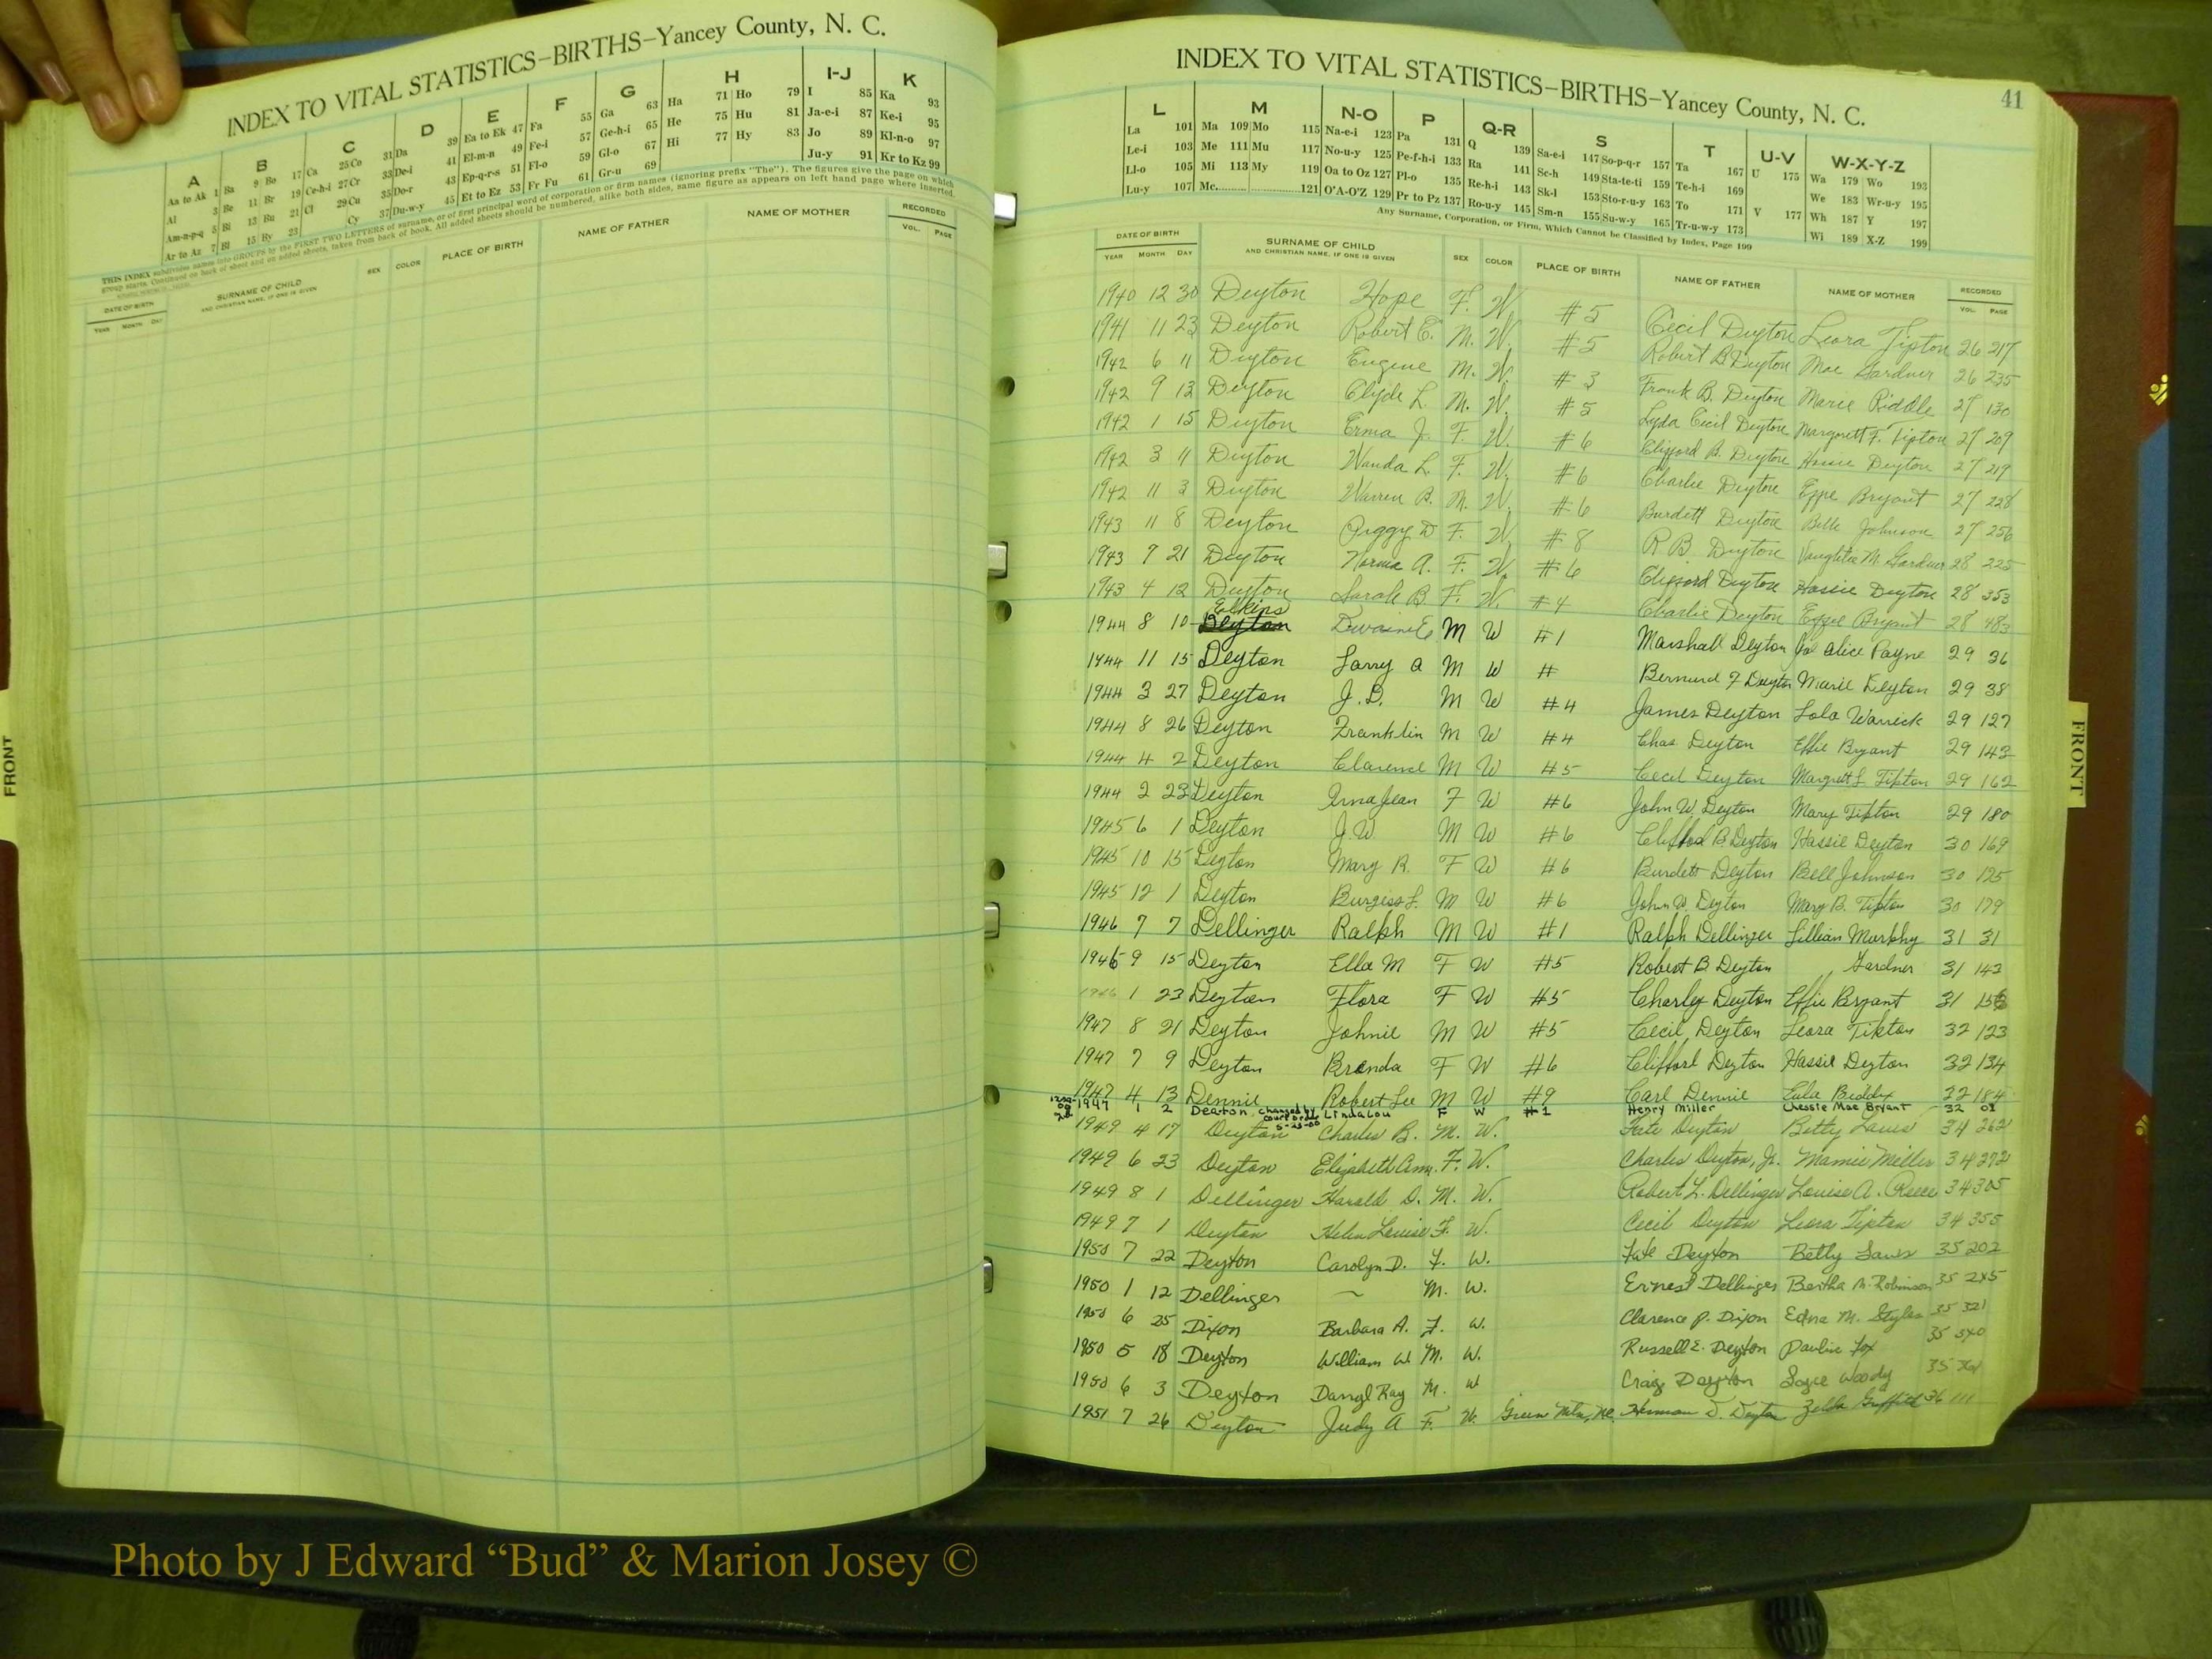 INDEX TO VITAL STATISTICS—BIRTHS—Yancey County, N. C.
A B C D E F G H I-J K
Aa to Ak 1 Ba 9 Bo 17 Ca 25 Co 31 Da 39 Ea to Ek 47 Fa 55 Ga 63 Ha 71 Ho 79 I 85 Ka 93
Al 3 Be 11 Br 19 Ce-h-i 27 Cr 33 De-i 41 El-m-n 49 Fe-i 57 Ge-h-i 65 He 75 Hu 81 Ja-e-i 87 Ke-i 95
Am-n-p-q 5 Bi 13 Bu 21 Cl 29 Cu 35 Do-r 43 Ep-q-r-s 51 Fl-o 59 Gl-o 67 Hi 77 Hy 83 Jo 89 Kl-n-o 97
Ar to Az 7 Bl 15 By 23 Cy 37 Du-w-y 45 Et to Ez 53 Fr Fu 61 Gr-u 69 Ju-y 91 Kr to Kz 99
THIS INDEX subdivides names into GROUPS by the FIRST TWO LETTERS of surname, or of first principal word of corporation or firm names (ignoring prefix "The"). The figures give the page on which
group starts. Continued on back of sheet and on added sheets, taken from back of book. All added sheets should be numbered, alike both sides, same figure as appears on left hand page where inserted.
DATE OF BIRTH SURNAME OF CHILD SEX COLOR PLACE OF BIRTH NAME OF FATHER NAME OF MOTHER RECORDED
YEAR MONTH DAY AND CHRISTIAN NAME, IF ONE IS GIVEN VOL. PAGE
FRONT
INDEX TO VITAL STATISTICS—BIRTHS—Yancey County, N. C.
41
L M N-O P Q-R S T U-V W-X-Y-Z
La 101 Ma 109 Mo 115 Na-e-i 123 Pa 131 Q 139 Sa-e-i 147 So-p-q-r 157 Ta 167 U 175 Wa 179 Wo 193
Le-i 103 Me 111 Mu 117 No-u-y 125 Pe-f-h-i 133 Ra 141 Sc-h 149 Sta-te-ti 159 Te-h-i 169 We 183 Wr-u-y 195
Ll-o 105 Mi 113 My 119 Oa to Oz 127 Pl-o 135 Re-h-i 143 Sk-l 153 Sto-r-u-y 163 To 171 V 177 Wh 187 Y 197
Lu-y 107 Mc 121 O'A-O'Z 129 Pr to Pz 137 Ro-u-y 145 Sm-n 155 Su-w-y 165 Tr-u-w-y 173 Wi 189 X-Z 199
Any Surname, Corporation, or Firm, Which Cannot be Classified by Index, Page 199
DATE OF BIRTH SURNAME OF CHILD SEX COLOR PLACE OF BIRTH NAME OF FATHER NAME OF MOTHER RECORDED
YEAR MONTH DAY AND CHRISTIAN NAME, IF ONE IS GIVEN VOL. PAGE
1940 12 30 Deyton Hope F. W. #5 Cecil Deyton Leora Tipton 26 217
1941 11 23 Deyton Robert E. M. W. #5 Robert B Deyton Mae Gardner 26 235
1942 6 11 Deyton Eugene M. W. #3 Frank B. Deyton Marie Riddle 27 130
1942 9 13 Deyton Clyde L. M. W. #5 Lyda Cecil Deyton Margarett F. Tipton 27 209
1942 1 15 Deyton Erma J. F. W. #6 Clifford B. Deyton Hassie Deyton 27 219
1942 3 11 Deyton Wanda L. F. W. #6 Charlie Deyton Effie Bryant 27 228
1942 11 3 Deyton Warren B. M. W. #6 Burdett Deyton Belle Johnson 27 256
1943 11 8 Deyton Peggy D F. W. #8 R. B. Deyton M. Gardner 28 225
1943 7 21 Deyton Norma A. F. W. #6 Clifford Deyton Hassie Deyton 28 353
1943 4 12 Deyton Sarah B F. W. #4 Charlie Deyton Effie Bryant 28 483
Elkins
1944 8 10 Deyton Dwaine E M W #1 Marshall Deyton Alice Payne 29 36
1944 11 15 Deyton Larry A M W # Bernard F Deyton Marie Deyton 29 38
1944 3 27 Deyton J.D. M W #4 James Deyton Lola Warrick 29 127
1944 8 26 Deyton Franklin M W #4 Chas Deyton Effie Bryant 29 143
1944 4 2 Deyton Clarence M W #5 Cecil Deyton Margrett L Tipton 29 162
1944 2 23 Deyton Erna Jean F W #6 John W. Deyton Mary Tipton 29 180
1945 6 1 Deyton J.W. M W #6 Clifford B. Deyton Hassie Deyton 30 169
1945 10 15 Deyton Mary R. F W #6 Burdett Deyton Bell Johnson 30 175
1945 12 1 Deyton Burgess L. M W #6 John W. Deyton Mary B. Tipton 30 179
1946 7 7 Dellinger Ralph M W #1 Ralph Dellinger Lillian Murphy 31 31
1946 9 15 Deyton Ella M F W #5 Robert B Deyton Gardner 31 143
1946 1 23 Deyton Flora F W #5 Charley Deyton Effie Bryant 31
1947 8 21 Deyton Johnie M W #5 Cecil Deyton Leora Tipton 32 123
1947 7 9 Deyton Brenda F W #6 Clifford Deyton Hassie Deyton 32 134
1947 4 13 Dennie Robert Lee M W #9 Carl Dennie Eula Biddix 32 184
1947 1 2 Deaton changed by court order 5-23-00 Linda Lou F W #1 Henry Miller Chessie Mae Bryant 32 01
1949 4 17 Deyton Charles B. M. W. Fate Deyton Betty Laws 34 262
1949 6 23 Deyton Elizabeth Ann F. W. Charles Deyton, Jr. Mamie Miller 34 272
1949 8 1 Dellinger Harold D. M. W. Robert L. Dellinger Louise A. Reece 34 305
1949 7 1 Deyton Helen Louise F. W. Cecil Deyton Leora Tipton 34 355
1950 7 22 Deyton Carolyn D. F. W. Fate Deyton Betty Laws 35 202
1950 1 12 Dellinger — M. W. Ernest Dellinger Bertha M. Robinson 35 245
1950 6 25 Dixon Barbara A. F. W. Clarence P. Dixon Edna M. Styles 35 321
1950 5 18 Deyton William W. M. W. Russell E. Deyton Pauline Fox 35 340
1950 6 3 Deyton Darryl Ray M. W Craig Deyton Joyce Woody 35
1951 7 26 Deyton Judy A F. W. Green Mtn, NC. Herman D. Deyton Zelda Griffith 36 111
FRONT
Photo by J Edward “Bud” & Marion Josey ©